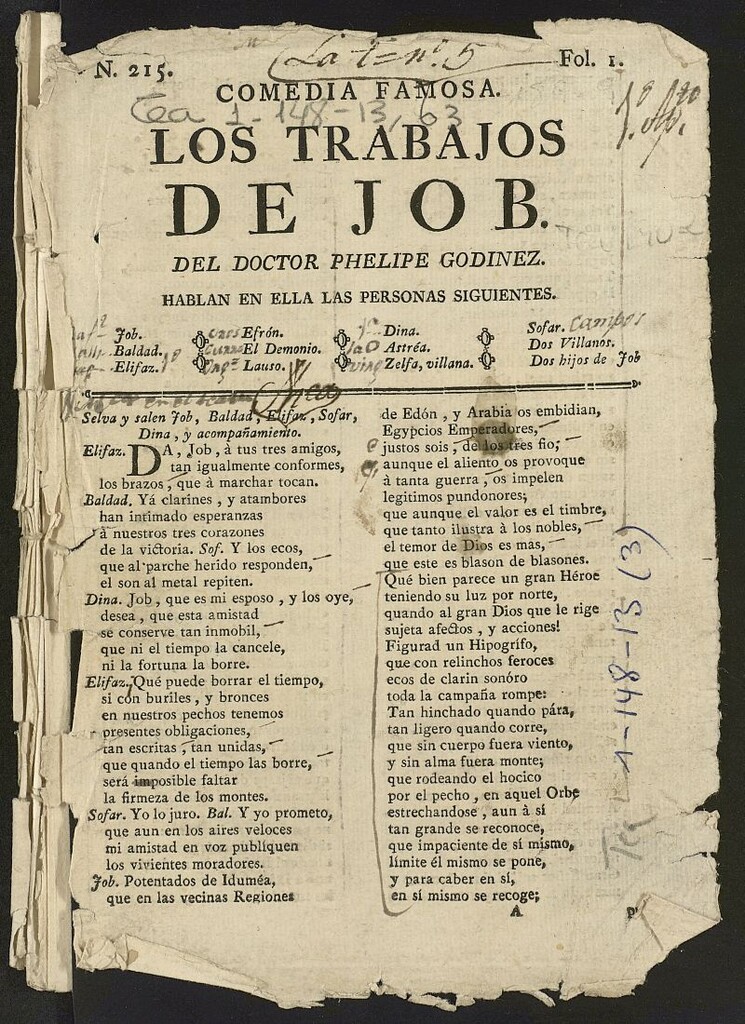 N. 215.
La t=nº. 5
Fol. 1.
COMEDIA FAMOSA.
Tea 1-148-13, 63
LOS TRABAJOS
DE JOB.
DEL DOCTOR PHELIPE GODINEZ.
HABLAN EN ELLA LAS PERSONAS SIGUIENTES.
Job.
Baldad.
Elifaz.
Efrón.
El Demonio.
Lauso.
Dina.
Astréa.
Zelfa, villana.
Sofar. Campos
Dos Villanos.
Dos hijos de Job
Selva y salen Job, Baldad, Elifaz, Sofar,
Dina, y acompañamiento.
Elifaz. DA, Job, à tus tres amigos,
tan igualmente conformes,
los brazos, que à marchar tocan.
Baldad. Yá clarines, y atambores
han intimado esperanzas
à nuestros tres corazones
de la victoria. Sof. Y los ecos,
que al parche herido responden,
el son al metal repiten.
Dina. Job, que es mi esposo, y los oye,
desea, que esta amistad
se conserve tan inmobil,
que ni el tiempo la cancele,
ni la fortuna la borre.
Elifaz. Qué puede borrar el tiempo,
si con buriles, y bronces
en nuestros pechos tenemos
presentes obligaciones,
tan escritas, tan unidas,
que quando el tiempo las borre,
será imposible faltar
la firmeza de los montes.
Sofar. Yo lo juro. Bal. Y yo prometo,
que aun en los aires veloces
mi amistad en voz publiquen
los vivientes moradores.
Job. Potentados de Iduméa,
que en las vecinas Regiones
de Edón, y Arabia os embidian,
Egypcios Emperadores,
justos sois, de los tres fio;
aunque el aliento os provoque
à tanta guerra, os impelen
legitimos pundonores;
que aunque el valor es el timbre,
que tanto ilustra à los nobles,
el temor de Dios es mas,
que este es blason de blasones.
Qué bien parece un gran Héroe
teniendo su luz por norte,
quando al gran Dios que le rige
sujeta afectos, y acciones!
Figurad un Hipogrífo,
que con relinchos feroces
ecos de clarin sonóro
toda la campaña rompe:
Tan hinchado quando pára,
tan ligero quando corre,
que sin cuerpo fuera viento,
y sin alma fuera monte;
que rodeando el hocico
por el pecho, en aquel Orbe
estrechandose, aun à sí
tan grande se reconoce,
que impaciente de sí mismo,
límite él mismo se pone,
y para caber en sí,
en sí mismo se recoge;
A
Tea 1-148-13 (3)